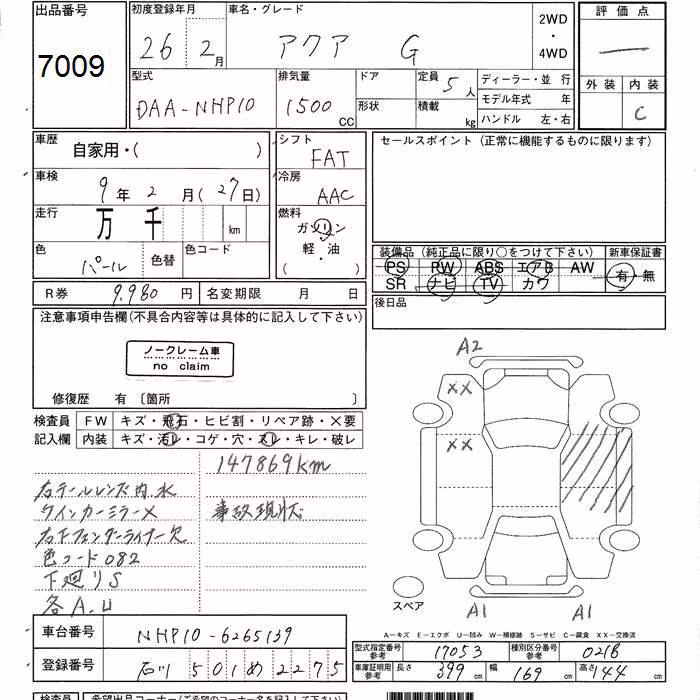 出品番号 初度登録年月 車名・グレード 評価点
7009 26 2月 アクア G 2WD ・ 4WD
型式 排気量 ドア 定員 5人 ディーラー・並 行 外装 内装
DAA-NHP10 1500 CC 形状 積載 kg モデル年式 年 C
ハンドル 左・右
車歴 自家用・( ) シフト FAT セールスポイント (正常に機能するものに限ります)
車検 9年 2月 (27日) 冷房 AAC
走行 万 千 km 燃料 ガソリン
軽・油
( )
色 パール 色替 色コード
装備品 (純正品に限り○をつけて下さい) 新車保証書
PS RW ABS エアB AW 有・無
SR ナビ TV カワ
R券 9,980 円 名変期限 月 日 後日品
注意事項申告欄(不具合内容等は具体的に記入して下さい)
ノークレーム車
no claim
修復歴 有 〔箇所 〕
検査員 FW キズ・飛石・ヒビ割・リペア跡・X要
記入欄 内装 キズ・汚レ・コゲ・穴・スレ・キレ・破レ
147869km
右テールレンズ内水
ウインカーミラーX 事故現状
右下フェンダーライナー欠
色コード082
下廻りS
各A.U
A2
XX
XX
スペア A1 A1
A-キズ E-エクボ U-凹み W-補修跡 S-サビ C-腐食 XX-交換済
車台番号 NHP10-6265139
型式指定番号 参考 17053 種別区分番号 参考 0216
登録番号 石川 501 め 2275
車庫証明用 参考 長さ 399 cm 幅 169 cm 高さ 144 cm
検査員 希望出品コーナー(ご希望のコーナー名を記入下さい)